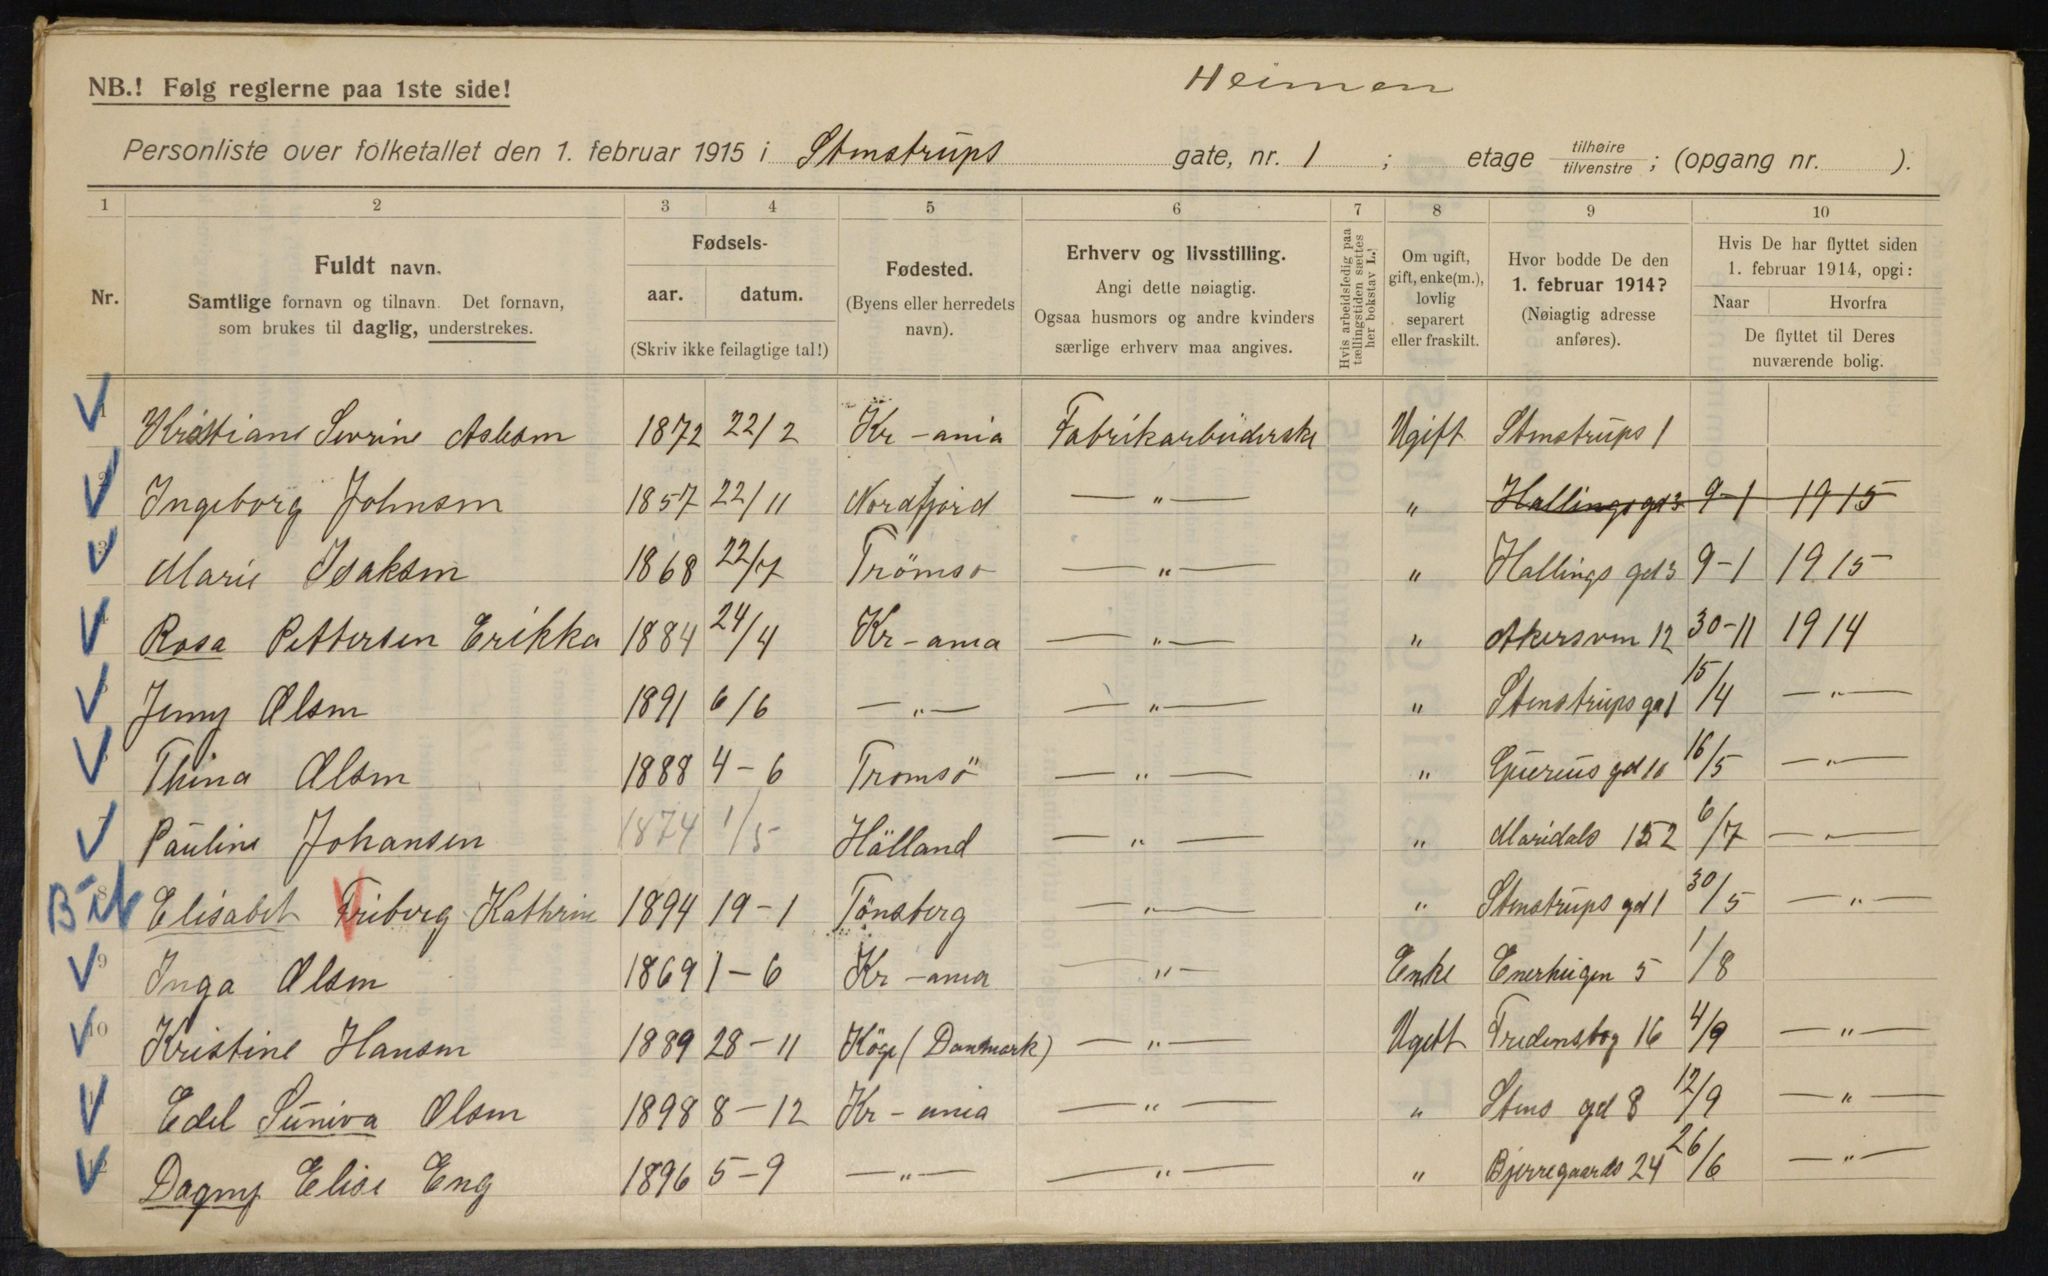 Heimen
NB.! Følg reglerne paa 1ste side!
Personliste over folketallet den 1. februar 1915 i Stenstrups gate, nr. 1 ; etage tilhøire tilvenstre ; (opgang nr. ).
1 2 3 4 5 6 7 8 9 10
Nr.
Fuldt navn.
Samtlige fornavn og tilnavn. Det fornavn,
som brukes til daglig, understrekes.
Fødsels-
aar. datum.
(Skriv ikke feilagtige tal!)
Fødested.
(Byens eller herredets
navn).
Erhverv og livsstilling.
Angi dette nøiagtig.
Ogsaa husmors og andre kvinders
særlige erhverv maa angives.
Hvis arbeidsledig paa
tællingstiden sættes
her bokstav L.!
Om ugift,
gift, enke(m.),
lovlig
separert
eller fraskilt.
Hvor bodde De den
1. februar 1914?
(Nøiagtig adresse
anføres).
Hvis De har flyttet siden
1. februar 1914, opgi:
Naar Hvorfra
De flyttet til Deres
nuværende bolig.
1 Kristiane Sevrine Aslesen 1872 22/2 Kr-ania Fabrikarbeiderske Ugift Stenstrups 1
2 Ingeborg Johnsen 1857 22/11 Nordfjord — " — " Hallings gd 3 9-1 1915
3 Marie Isaksen 1868 22/7 Trömsö — " — " Hallings gd 3 9-1 1915
4 Rosa Pettersen Erikka 1884 24/4 Kr-ania — " — " Akersven 12 30-11 1914
5 Jenny Olsen 1891 6/6 — " — — " — " Stenstrups gd 1 15/4 — " —
6 Thina Olsen 1888 4-6 Tromsö — " — " gd 10 16/5 — " —
7 Pauline Johansen 1874 1/5 Hålland — " — " Maridals 152 6/7 — " —
8 Elisabet Friberg Kathrine 1894 19-1 Tönsberg — " — " Stenstrups gd 1 30/5 — " —
9 Inga Olsen 1869 1-6 Kr-ania — " — Enke Enerhugen 5 1/8
10 Kristine Hansen 1889 28-11 Köge (Danmark) — " — Ugift Fredensbog 16 4/9 — " —
Edel Suniva Olsen 1898 8-12 Kr-ania — " — " Stens gd 8 12/9 — " —
12 Dagny Elise Eng 1896 5-9 — " — — " — " Bjerregaards 24 26/6 — " —